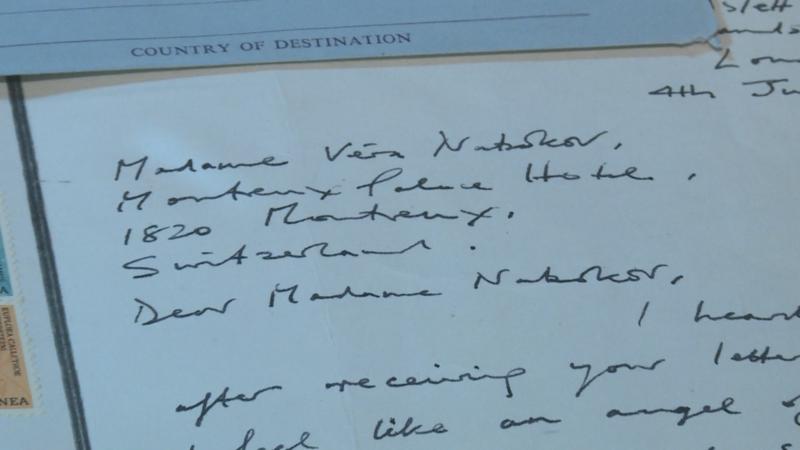 COUNTRY OF DESTINATION
4th Ju
Madame Véra Nabokov,
Montreux Palace Hotel,
1820 Montreux.
Switzerland.
Dear Madame Nabokov,
I heard
after receiving your letter
feel like an angel
NEA